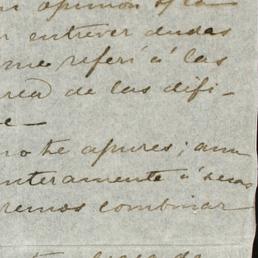 opinión
entrever dudas
me referí á las
área de las difi-
e—
no te apures; aun
enteramente á
remos combinar
de